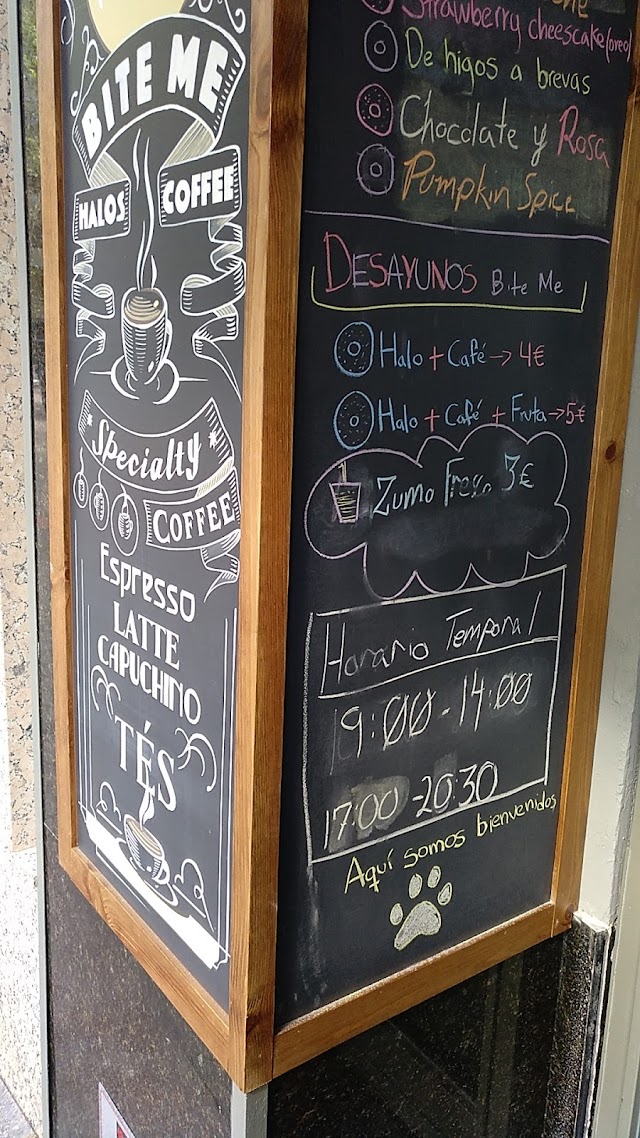 BITE ME
HALOS COFFEE
Specialty
COFFEE
Espresso
LATTE
CAPUCHINO
TÉS
Strawberry cheescake (oreo)
De higos a brevas
Chocolate y Rosa
Pumpkin Spice
DESAYUNOS Bite Me
Halo + Café → 4€
Halo + Café + Fruta → 5€
Zumo 3€
Horario Temporal
9:00 - 14:00
17:00 - 20:30
Aquí somos bienvenidos